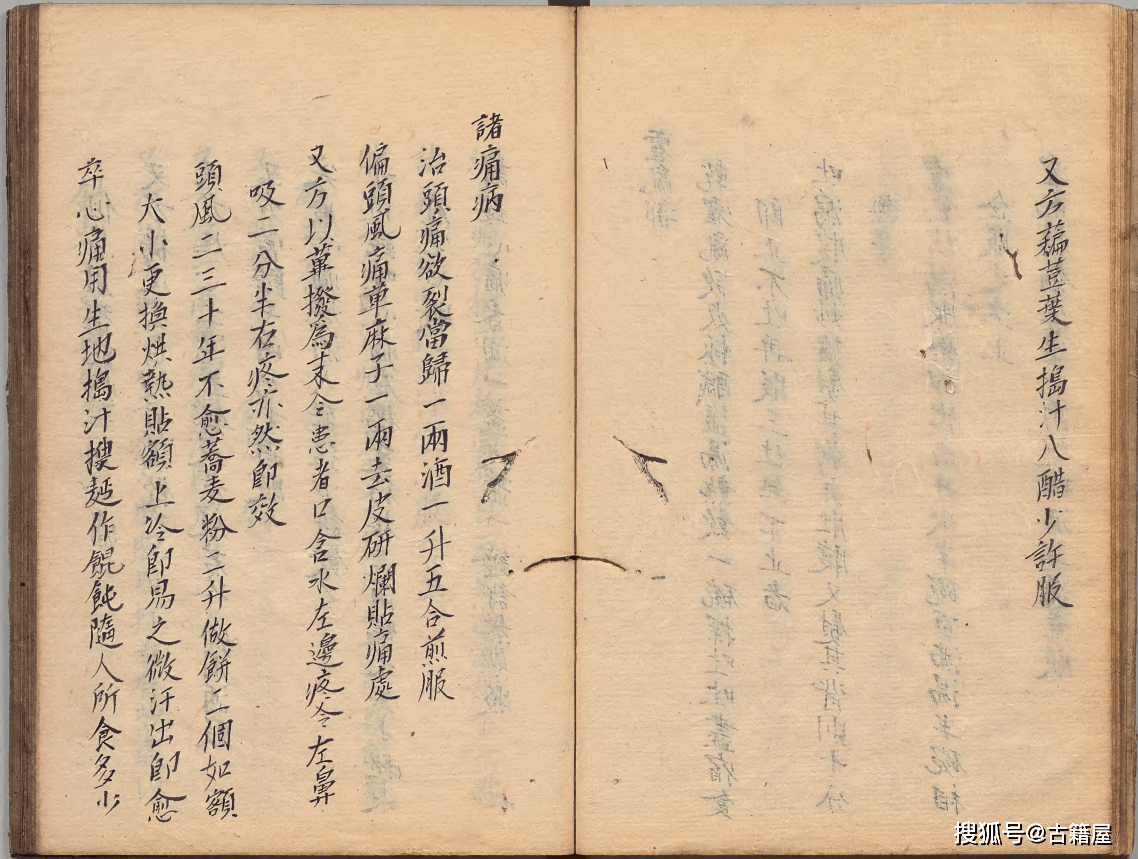 又方藊荳葉生搗汁八醋少許服
諸痛病
治頭痛欲裂當歸一兩酒一升五合煎服
偏頭風痛草麻子一兩去皮研爛貼痛處
又方以蓽撥為末令患者口含水左邊疼令左鼻
吸二分半右疼亦然即效
頭風二三十年不愈蕎麦粉二升做餅二個如額
大小更換烘熱貼額上冷即易之微汗出即愈
卒心痛用生地搗汁搜麺作餛飩隨人所食多少
搜狐号@古籍屋